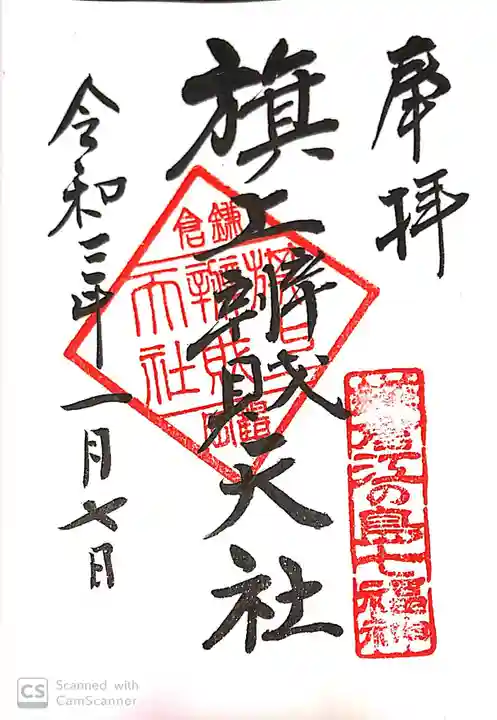 奉拝
鎌倉江の島七福神
旗上辨財天社
鎌倉
旗上
辨財
天社
令和三年一月七日
CS Scanned with
CamScanner